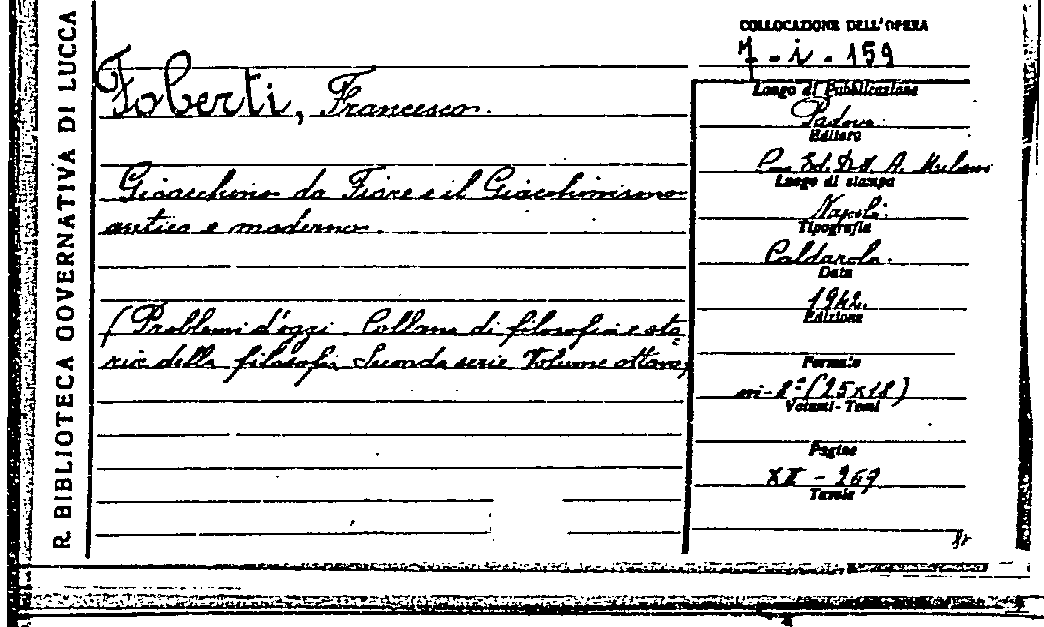 R. BIBLIOTECA GOVERNATIVA DI LUCCA
Foberti, Francesco.
Gioacchino da Fiore e il Giachinismo
antico e moderno.
(Problemi d'oggi. Collana di filosofia e sto-
ria della filosofia Seconda serie Volume ottavo)
COLLOCAZIONE DELL'OPERA
7 - i - 159
Luogo di Pubblicazione
Padova
Editore
Ed. A. Milani
Luogo di stampa
Napoli
Tipografia
Caldarola
Data
1942
Edizione
Formato
in-8º (25x18)
Volumi - Tomi
Pagine
XII - 267
Tavole